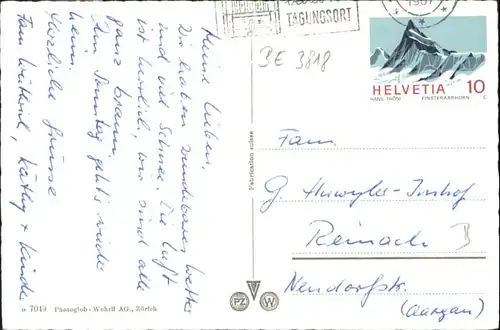 TAGUNGSORT
1967
BE 3818
HELVETIA 10
HANS THÖNI FINSTERAARHORN C.
Meine Lieben,
Wir haben wunderbares Wetter
und viel Schnee. Die Luft
ist herrlich, wir sind alle
ganz braun.
Am Sonntag geht's wieder
heim.
Herzliche Grüsse
Fam. Käthy + Kinder
Fabrication suisse
Fam.
G. Huwyler-Imhof
Reinach B
Neudorfstr.
(Aargau)
o 7019 Photoglob-Wehrli AG., Zürich
PZ W